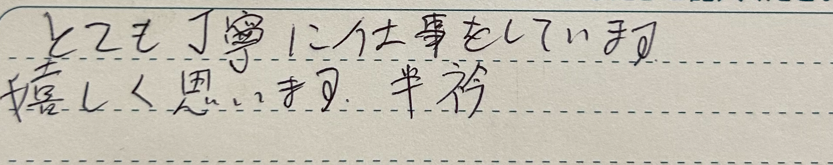 とても丁寧に仕事をしています
嬉しく思います. 半衿